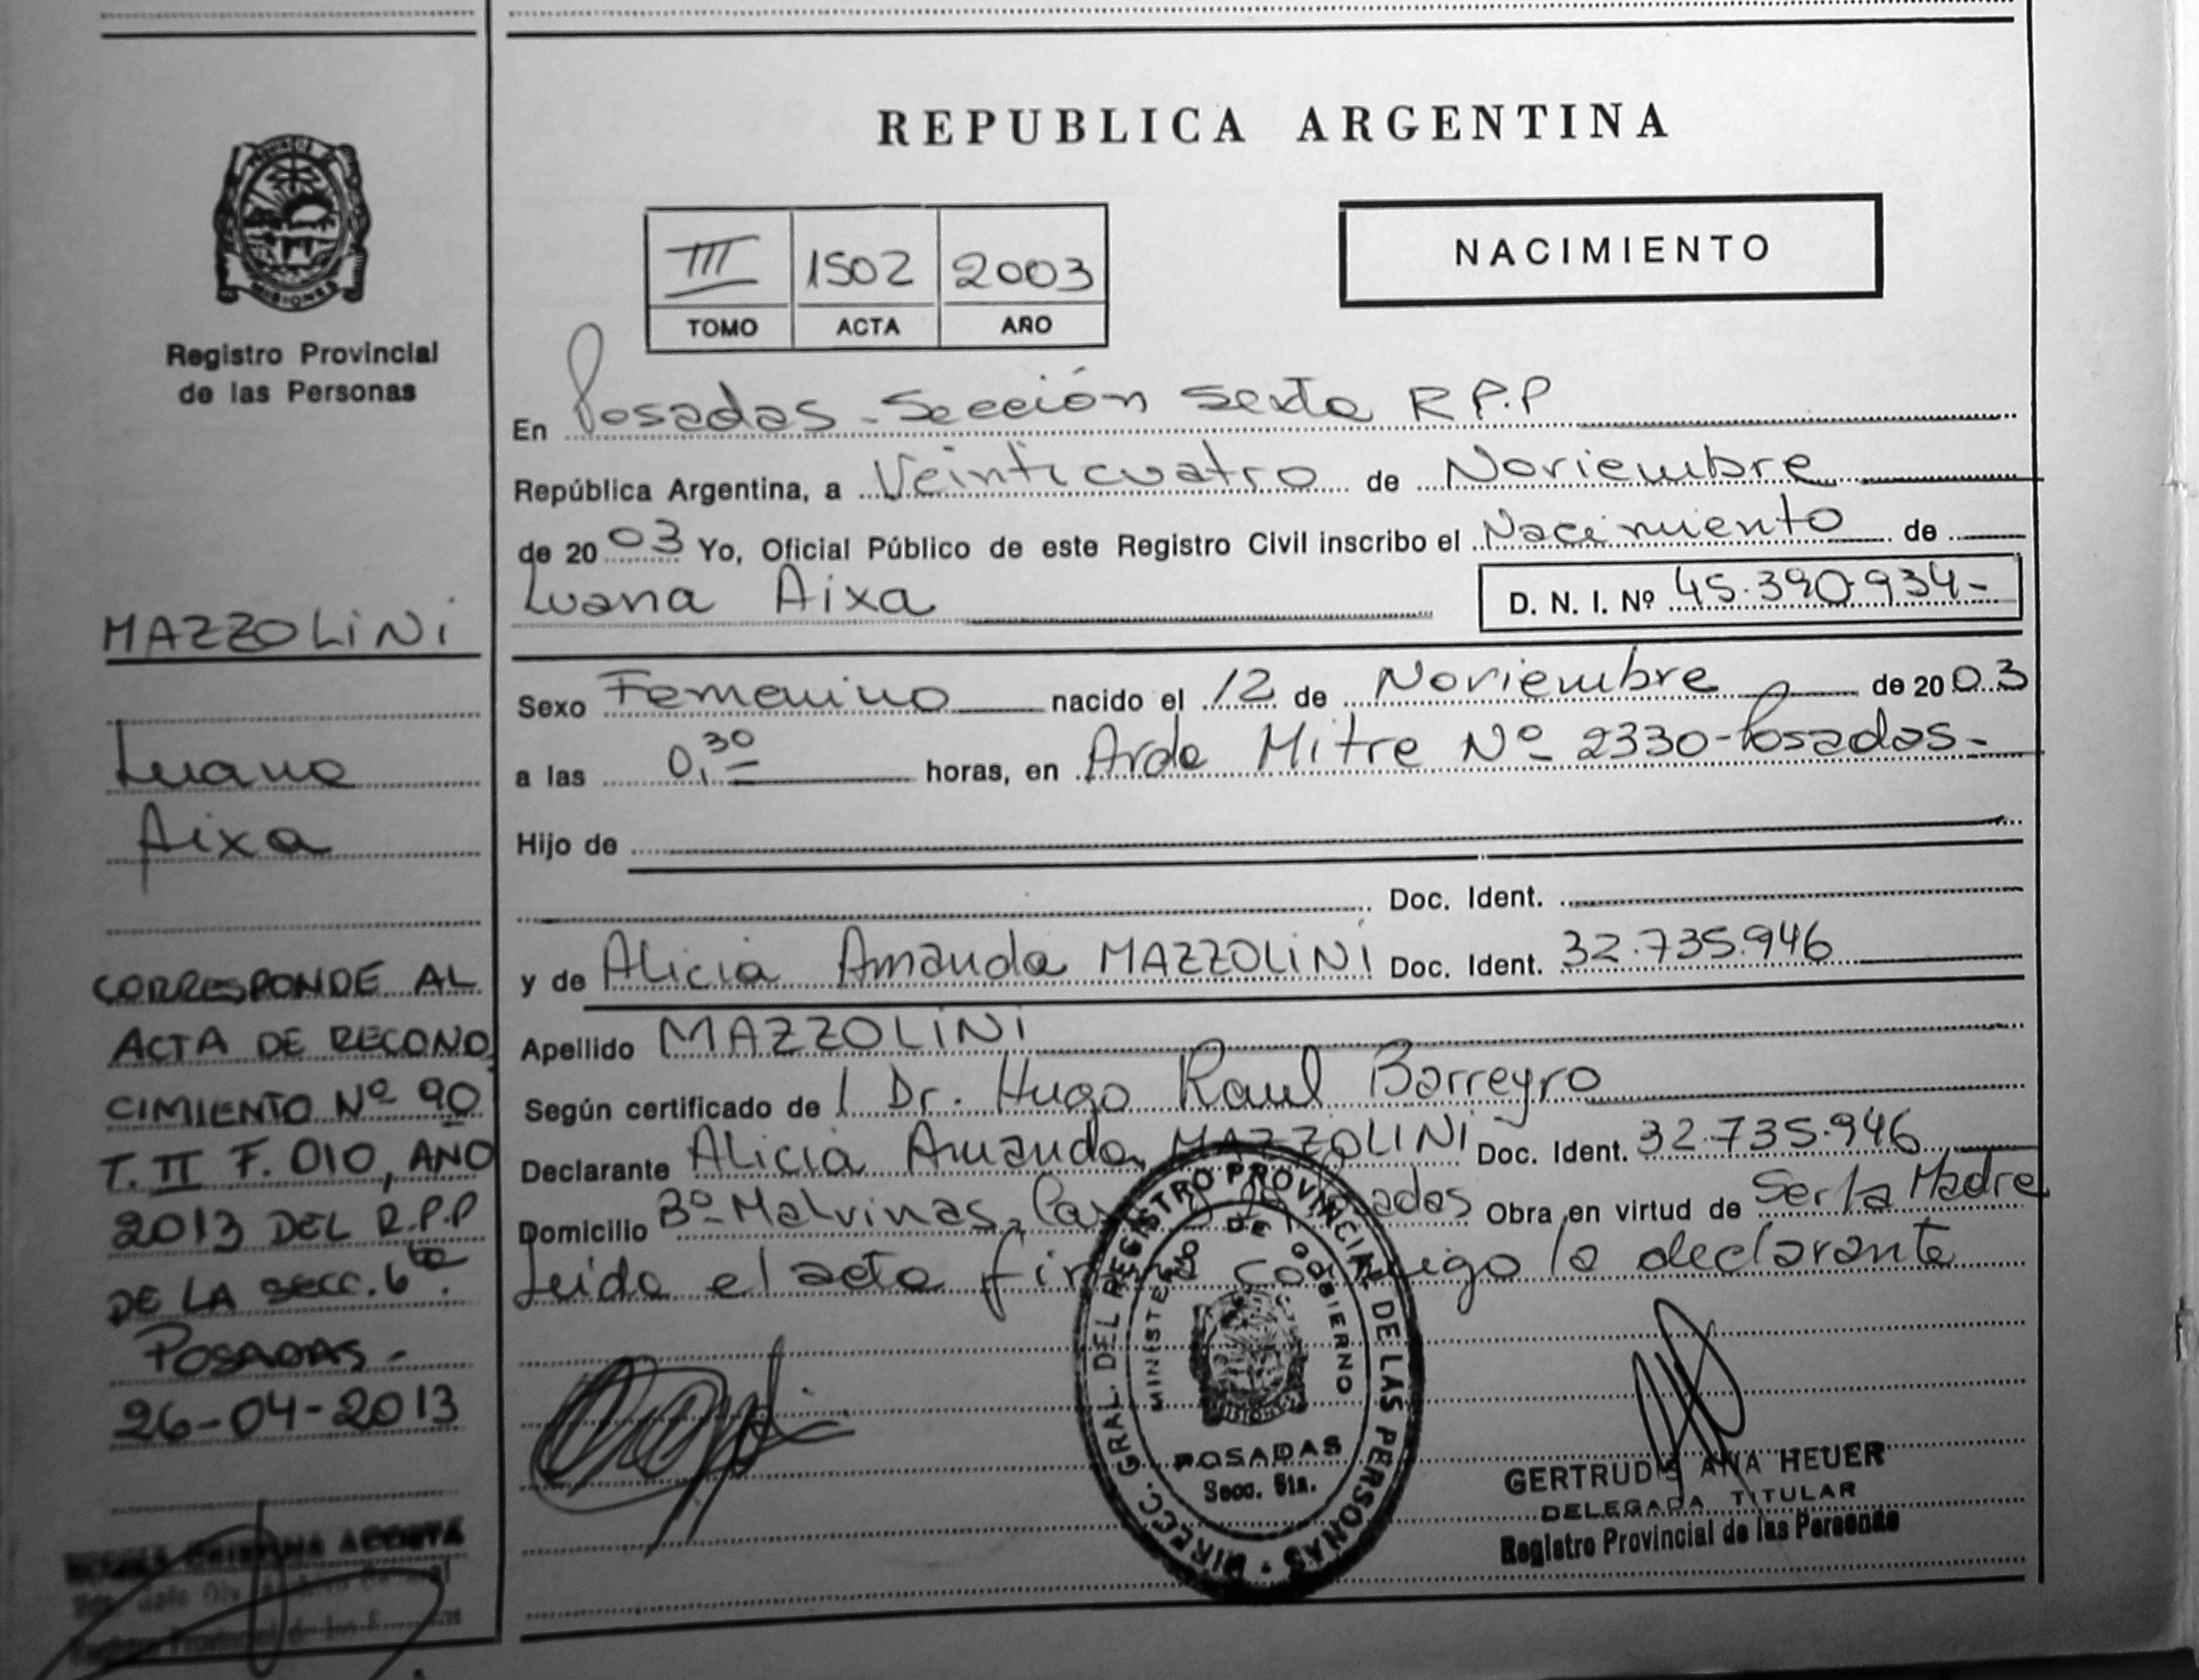 REPUBLICA ARGENTINA
MISIONES
Registro Provincial
de las Personas
III 1502 2003
TOMO ACTA AÑO
NACIMIENTO
En Posadas - Sección Sexta R.P.P
República Argentina, a Veinticuatro de Noviembre
de 2003 Yo, Oficial Público de este Registro Civil inscribo el Nacimiento de
Luana Aixa
D. N. I. Nº 45.390.934-
Sexo Femenino nacido el 12 de Noviembre de 2003
a las 0,30 horas, en Avda Mitre Nº 2330-Posadas-
Hijo de
Doc. Ident.
y de Alicia Amanda MAZZOLINI Doc. Ident. 32.735.946
Apellido MAZZOLINI
Según certificado de / Dr. Hugo Raul Barreyro
Declarante Alicia Amanda MAZZOLINI Doc. Ident. 32.735.946
Domicilio Bº Malvinas, Posadas Obra en virtud de Ser la Madre
Leida el acta firma conmigo la declarante
MAZZOLINI
Luana
Aixa
CORRESPONDE AL
ACTA DE RECONO
CIMIENTO Nº 90
T. II F. 010, AÑO
2013 DEL R.P.P
DE LA SECC. 6ta.
POSADAS-
26-04-2013
CRISTINA ACOSTA
DIRECC. GRAL. DEL REGISTRO PROVINCIAL DE LAS PERSONAS
MINISTERIO DE GOBIERNO
POSADAS
Secc. 6ta.
GERTRUDIS ANA HEUER
DELEGADA TITULAR
Registro Provincial de las Personas